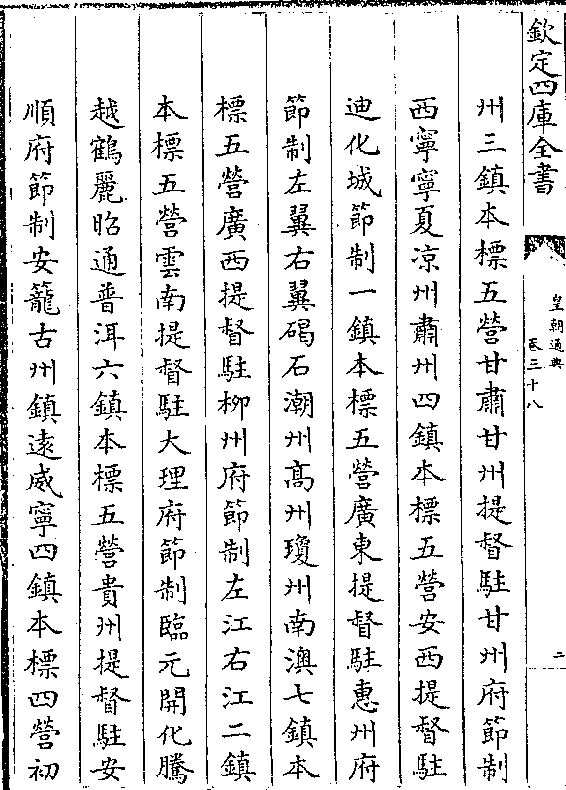 欽定四庫全書
皇朝通典
卷三十八
二
州三鎮本標五營甘肅甘州提督駐甘州府節制
西寧寧夏涼州肅州四鎮本標五營安西提督駐
迪化城節制一鎮本標五營廣東提督駐惠州府
節制左翼右翼碣石潮州髙州瓊州南澳七鎮本
標五營廣西提督駐柳州府節制左江右江二鎮
本標五營雲南提督駐大理府節制臨元開化騰
越鶴麗昭通普洱六鎮本標五營貴州提督駐安
順府節制安籠古州鎮逺威寧四鎮本標四營初